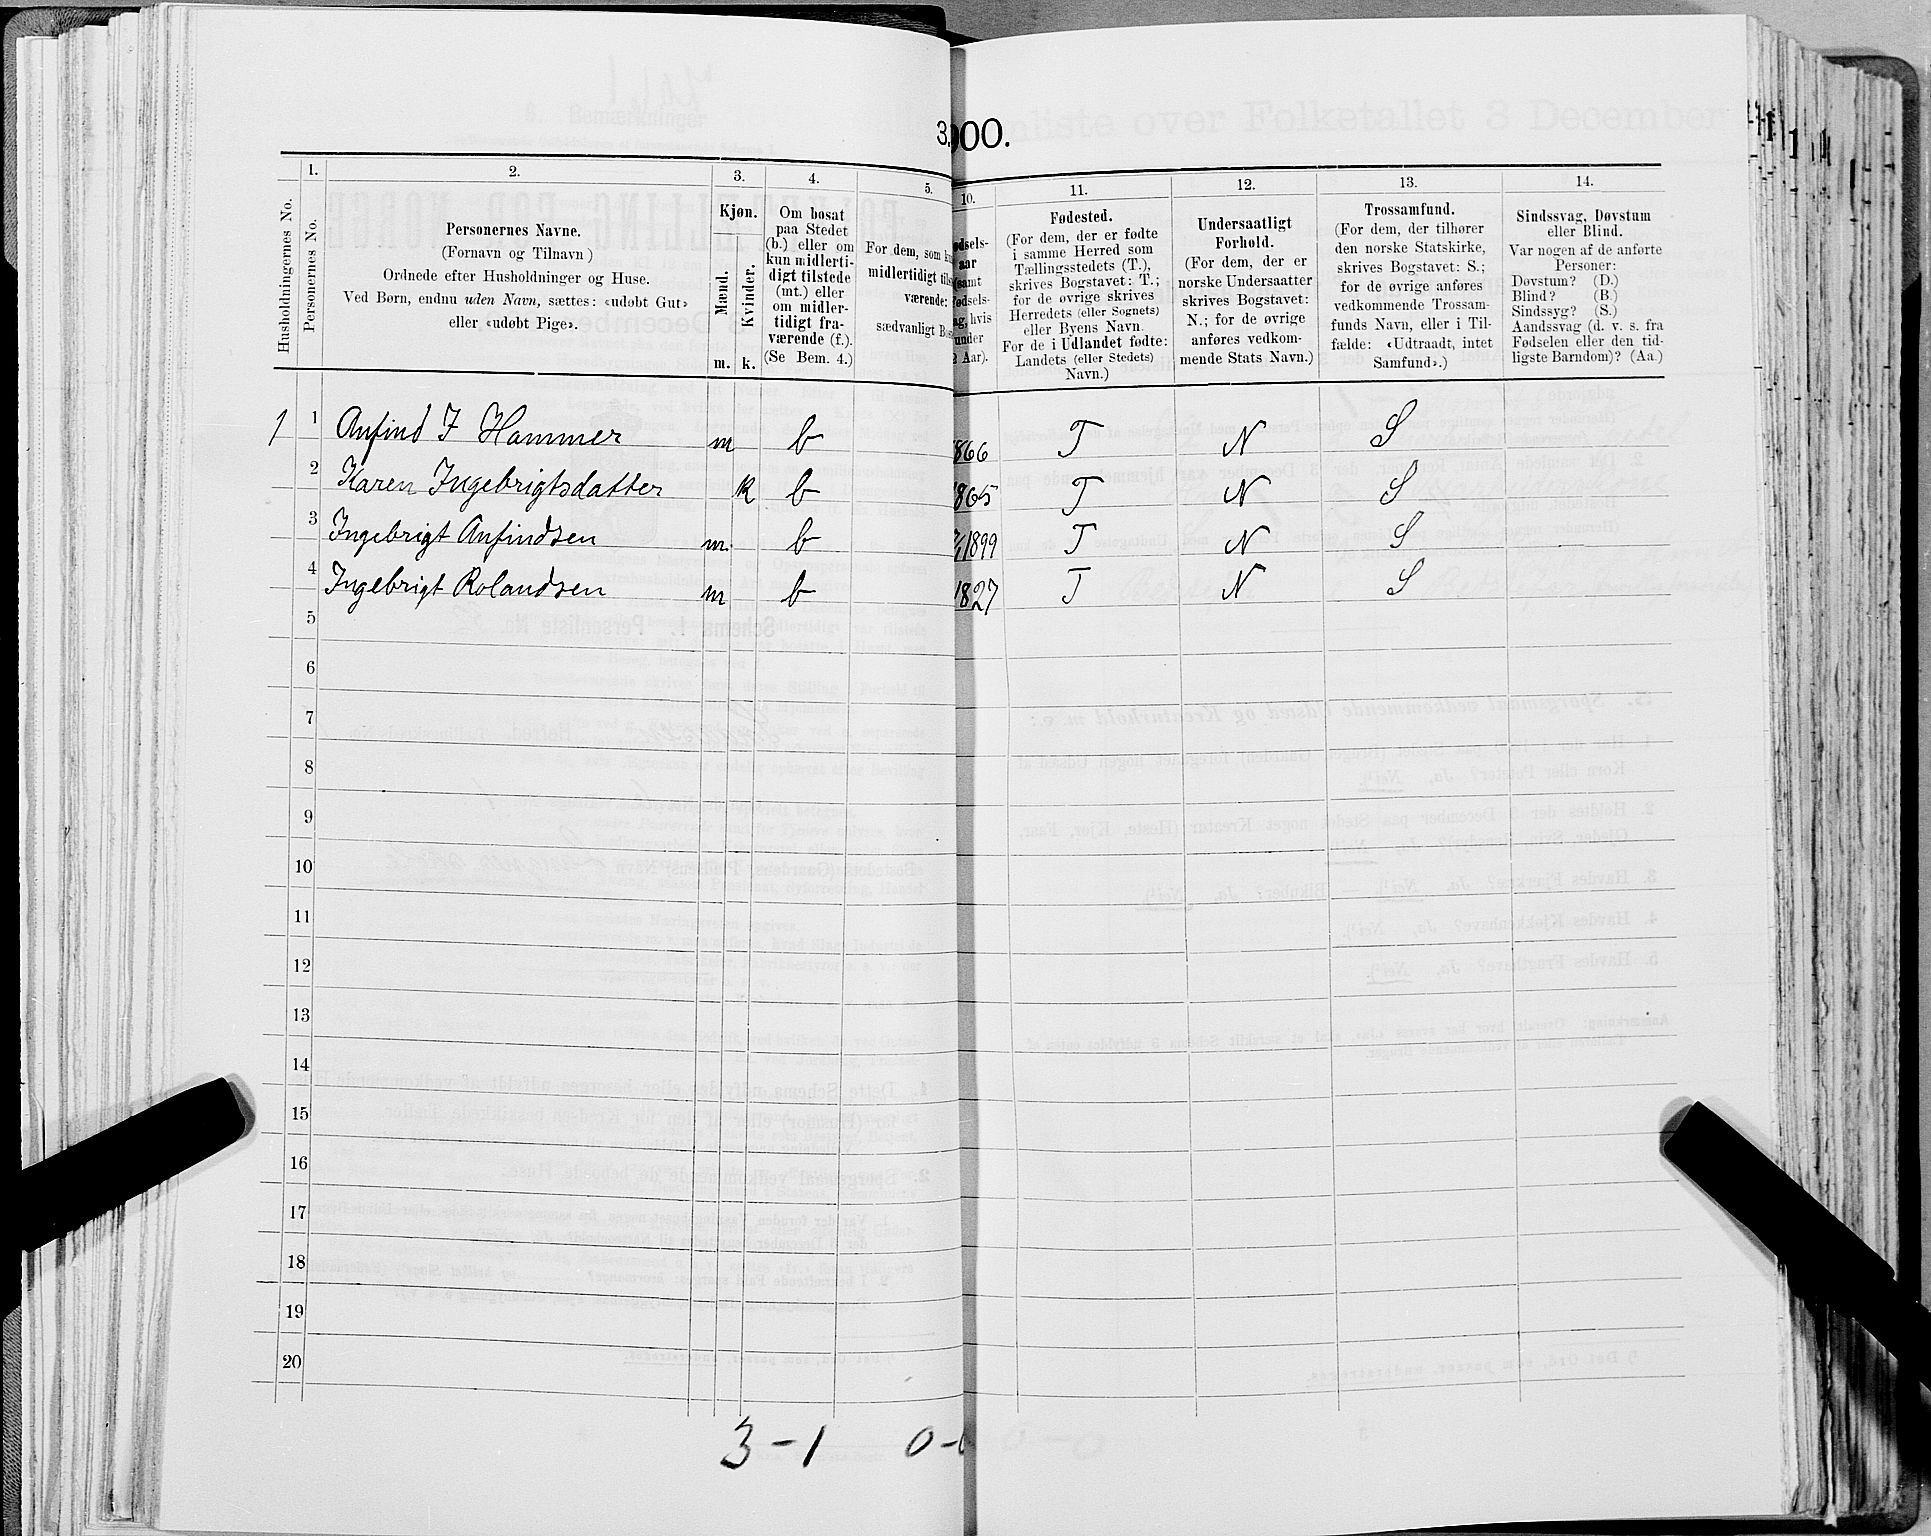 3.
900.
1.
2.
3.
4.
5.
10.
11.
12.
13.
14.
Husholdningernes No.
Personernes No.
Personernes Navne.
(Fornavn og Tilnavn)
Ordnede efter Husholdninger og Huse.
Ved Børn, endnu uden Navn, sættes: «udøbt Gut»
eller «udøbt Pige».
Kjøn.
Mænd.
Kvinder.
m.
k.
Om bosat
paa Stedet
(b.) eller om
kun midlerti-
digt tilstede
(mt.) eller
om midler-
tidigt fra-
værende (f.).
(Se Bem. 4.)
For dem, som
midlertidigt
værende:
sædvanligt
aar
samt
hvis
under
2 Aar).
Fødested.
(For dem, der er fødte
i samme Herred som
Tællingsstedets (T.),
skrives Bogstavet: T.;
for de øvrige skrives
Herredets (eller Sognets)
eller Byens Navn.
For de i Udlandet fødte:
Landets (eller Stedets)
Navn.)
Undersaatligt
Forhold.
(For dem, der er
norske Undersaatter
skrives Bogstavet:
N.; for de øvrige
anføres vedkom-
mende Stats Navn.)
Trossamfund.
(For dem, der tilhører
den norske Statskirke,
skrives Bogstavet: S.;
for de øvrige anføres
vedkommende Trossam-
funds Navn, eller i Til-
fælde: «Udtraadt, intet
Samfund».)
Sindssvag, Døvstum
eller Blind.
Var nogen af de anførte
Personer:
Døvstum? (D.)
Blind? (B.)
Sindssyg? (S.)
Aandssvag (d. v. s. fra
Fødselen eller den tid-
ligste Barndom)? (Aa.)
1 1 Anfind I Hammer m b 1866 T N S
2 Karen Ingebrigtsdatter k b 1865 T N S
3 Ingebrigt Anfindsen m b 1899 T N S
4 Ingebrigt Rolandsen m b 1827 T N S
5
6
7
8
9
10
11
12
13
14
15
16
17
18
19
20
3-1 0-